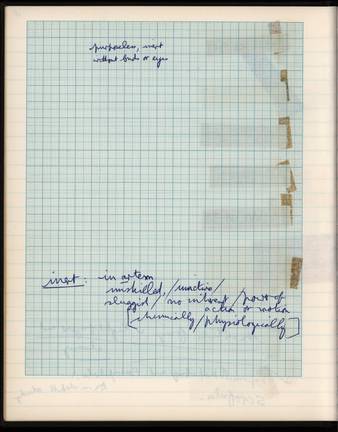 purposeless, inert
without buds or eyes
inert: in artem
unskilled, /inactive/
sluggid / no inherent / power of
action or motion
[chemically/physiologically]